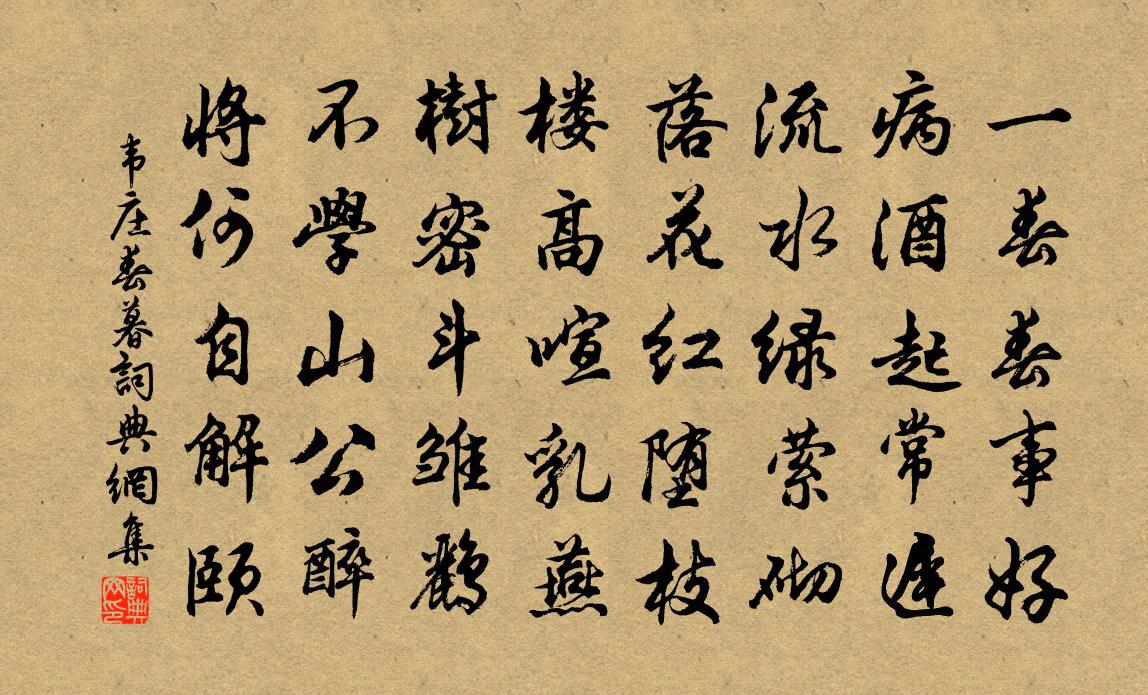 一春春事好
病酒起常遲
流水绿萦砌
落花红堕枝
楼高喧乳燕
樹密斗雏鹂
不學山公醉
将何自解颐
韦庄春暮詞典網集
詞典网印